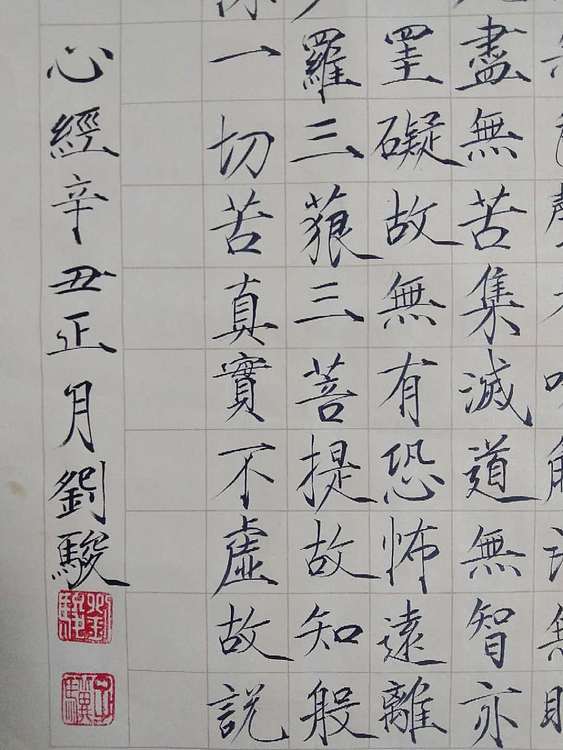 盡無苦集滅道無智亦
罣礙故無有恐怖遠離
羅三藐三菩提故知般
一切苦真實不虛故說
心經辛丑正月劉駿